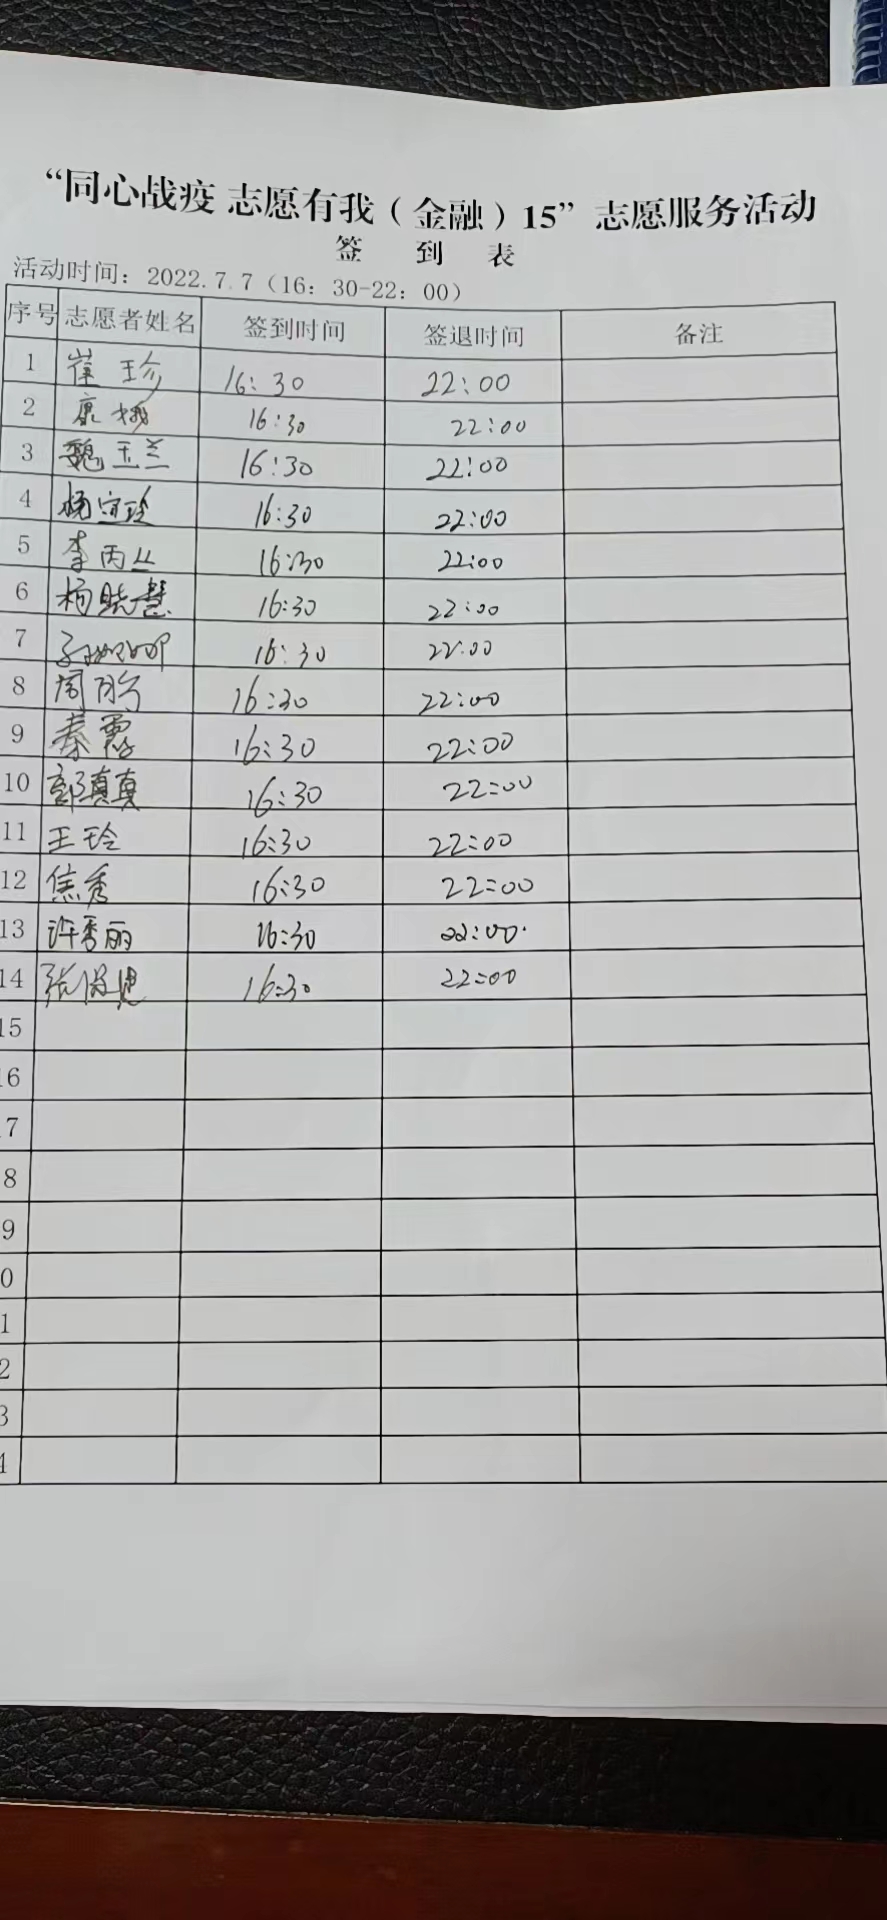 “同心战疫 志愿有我（金融）15”志愿服务活动
签 到 表
活动时间：2022.7.7（16：30-22：00）
序号 志愿者姓名 签到时间 签退时间 备注
1 崔珍 16:30 22:00
2 康娥 16:30 22:00
3 魏玉兰 16:30 22:00
4 杨宝玲 16:30 22:00
5 李丙丛 16:30 22:00
6 杨晓慧 16:30 22:00
7 16:30 22:00
8 周 16:30 22:00
9 秦霞 16:30 22:00
10 郭真真 16:30 22:00
11 王玲 16:30 22:00
12 焦秀 16:30 22:00
13 许秀丽 16:30 22:00
14 张 16:30 22:00
15
16
7
8
9
0
1
2
3
4